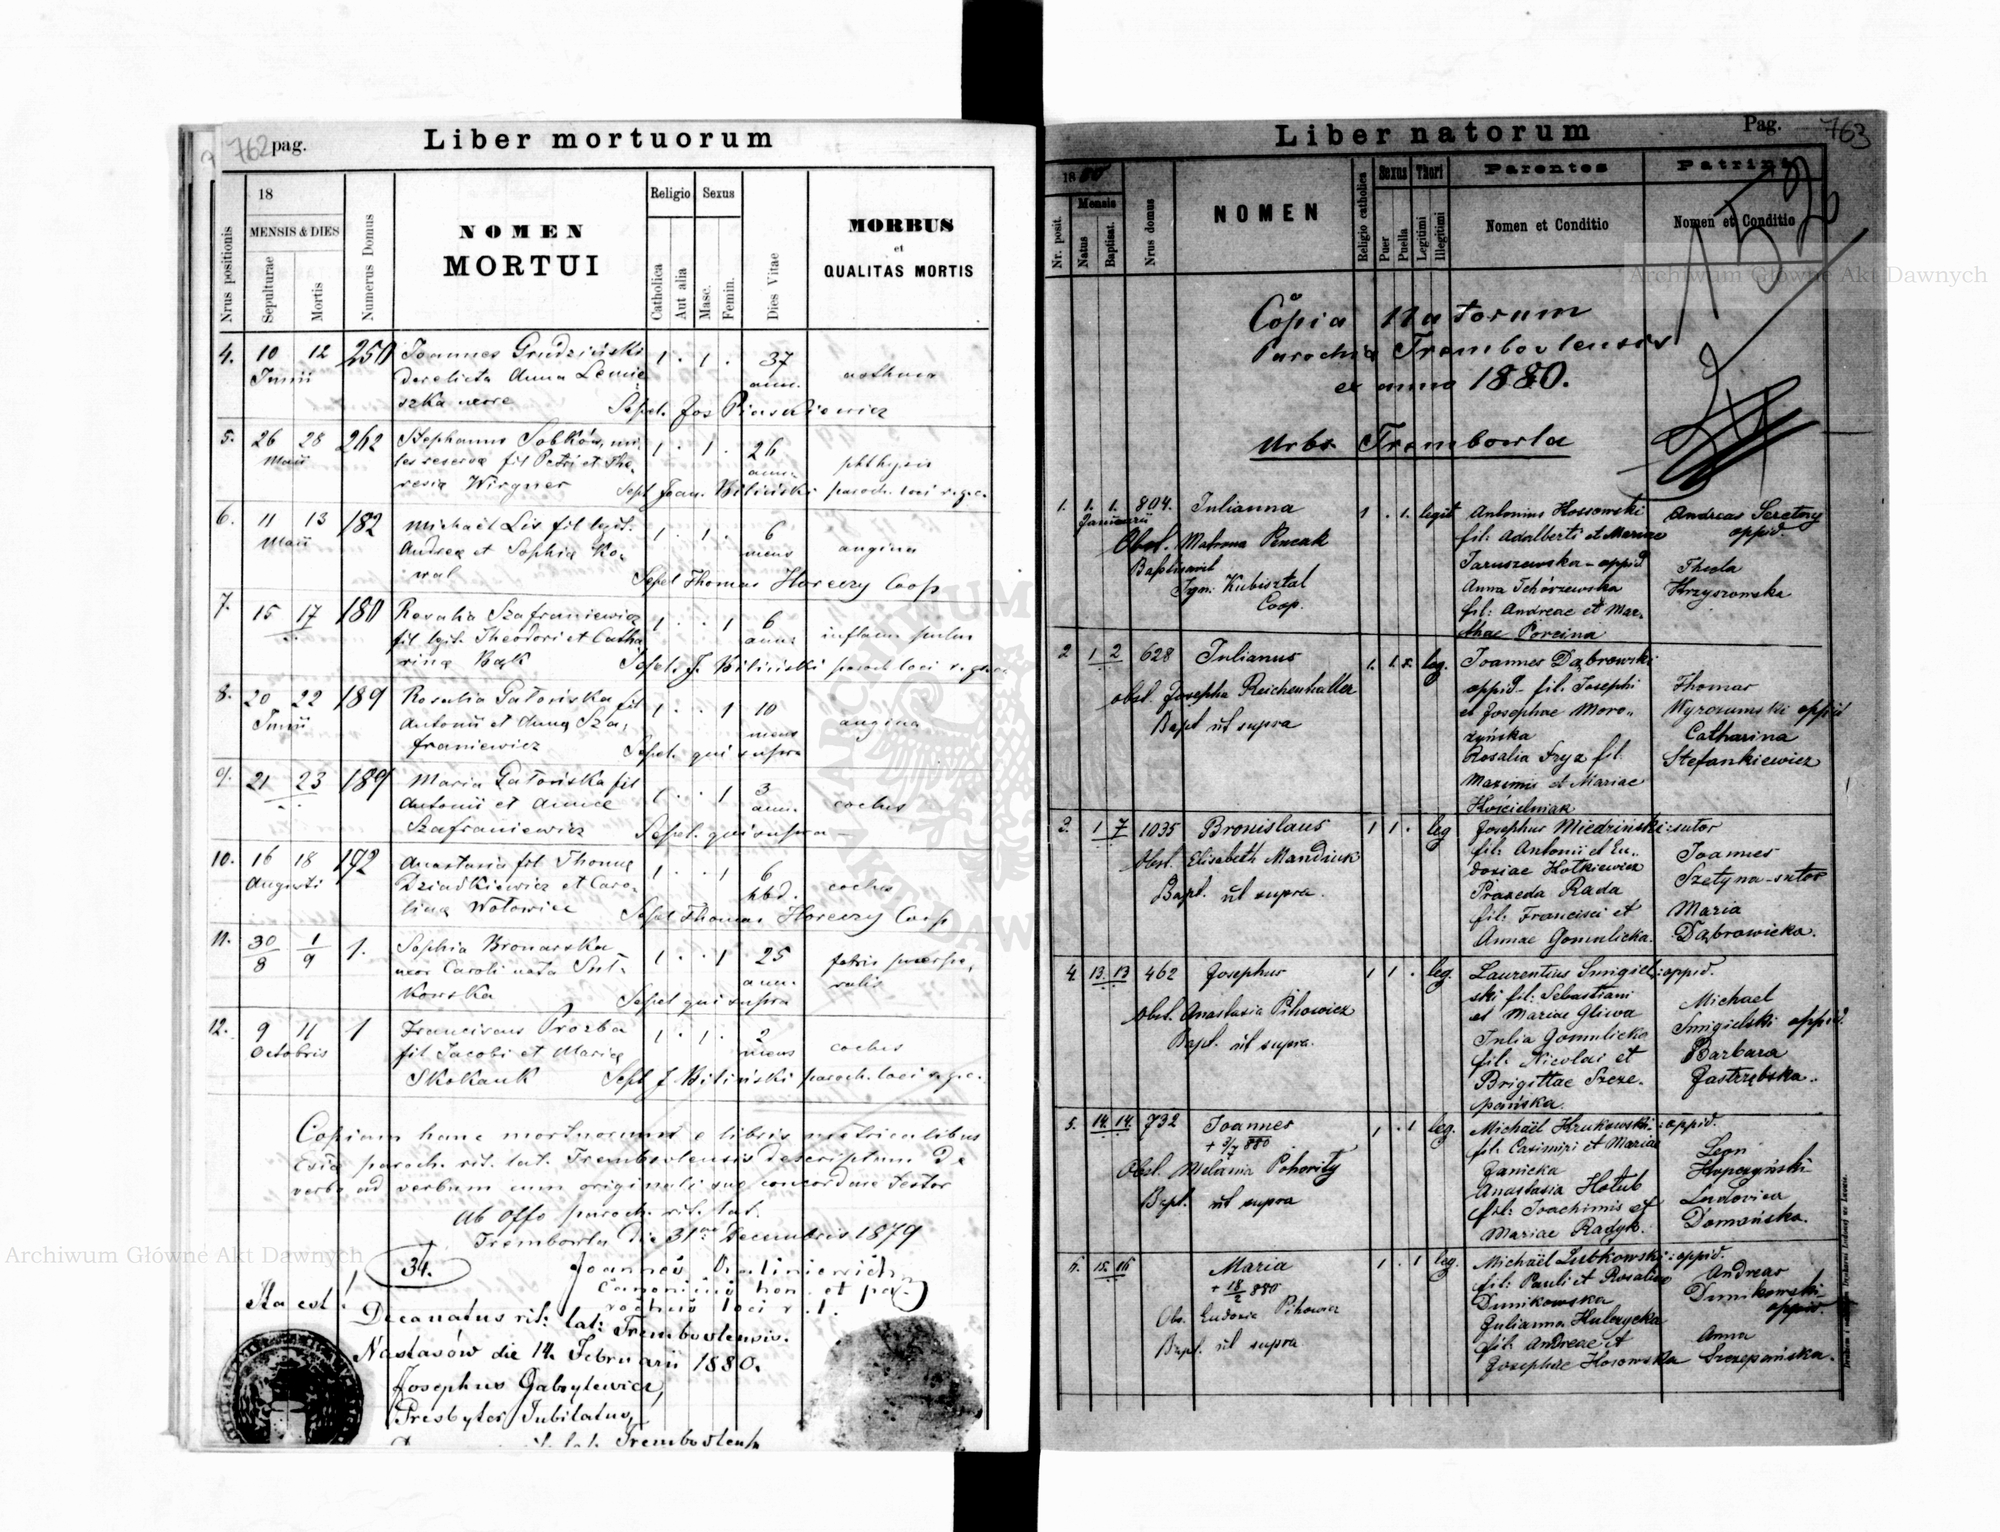 762 pag.
Liber mortuorum
Nrus positionis
18
MENSIS & DIES
Sepulturae
Mortis
Numerus Domus
NOMEN
MORTUI
Religio
Catholica
Aut alia
Sexus
Masc.
Femin.
Dies Vitae
MORBUS
et
QUALITAS MORTIS
4. 10 12 250 Joannes Grudziński 1 . 1 . 37
Junii derelicta Anna Lemie ann. asthma
szka uxore Sepel. Jos Piaskiewicz
5. 26 28 262 Stephanus Sobków mi 1 . 1 . 26
Maii les reserva fil Petri et The ann. phthysis
resia Wirgner Sepel Joan. Biliński paroch. loci r. g. c.
6. 11 13 182 Michael Lis fil legit. 1 . 1 . 6
Maii Andrea et Sophia Ko mens angina
wal Sepel Thomas Horeczy Coop
7. 15 17 180 Rosalia Szafraniewicz 1 . . 1 6
fil legit. Theodori et Catha ann. inflam pulm
rina Bąk Sepel. J. Biliński paroch loci r. g. c.
8. 20 22 189 Rosalia Gatońska fil 1 . . 1 10
Junii Antonii et Anna Sza mens angina
franiewicz Sepel. qui supra
9. 21 23 189 Maria Gatońska fil 1 . . 1 3
Antonii et Annae ann. coclus
Szafraniewicz Sepel. qui supra
10. 16 18 192 Anastasia fil Thoma 1 . . 1 6
Augusti Dziadkiewicz et Caro hbd. coclus
lina Wołowiec Sepel Thomas Horeczy Coop
11. 30/8 1/9 1. Sophia Bronarska 1 . . 1 25 febris puerpe
uxor Caroli nata Sut ann. ralis
kowska Sepel qui supra
12. 9 11 1 Franciscus Prozba 1 . 1 . 2
Octobris fil Jacobi et Maria mens coclus
Skokauk Sepel J. Biliński paroch. loci r. g. c.
Copiam hanc mortuorum e libris metricalibus
Ecclae paroch. rit. lat. Trembovlensis descriptam de
verbo ad verbum cum originali suo concordare testor
Ab Offo paroch. rit. lat.
Trembowla die 31 Decembris 1879
34. Joannes
Canonicus hon. et pa
rochus loci r. l.
Ita est!
Decanatus rit. lat. Trembovlensis.
Nastasów die 14. Februarii 1880.
Josephus Gabrylewicz,
Presbyter Jubilatus,
rit. lat. Trembovlensis
Liber natorum
Pag. 763
Nr. posit.
1880
Mensis
Natus
Baptisat.
Nrus domus
NOMEN
Religio catholica
Sexus
Puer
Puella
Thori
Legitimi
Illegitimi
Parentes
Nomen et Conditio
Patrini
Nomen et Conditio
Copia Natorum
Parochia Trembovlensis
ex anno 1880.
Urbs Trembowla
1. 1. 1. 804. Julianna 1 . 1. legit Antonius Kossowski Andreas Seretny
Januarii fil: Adalberti et Mariae oppid.
Obst. Matrona Pencak Jaruszewska - oppid
Baptisavit Anna Tchórzewska Thecla
Ign: Kubisztal fil: Andreae et Mar- Krzyszowska
Coop. thae Porcina
2 1 2 628 Julianus 1. 1. leg. Joannes Dąbrowski
oppid - fil: Josephi Thomas
obst. Josepha Reichenhalter et Josephae Moro- Wyrozumski oppid
Bapt ut supra zyńska Catharina
Rosalia Fryz fil. Stefankiewicz
Maximis et Mariae
Kościelniak
3. 1 7 1035 Bronislaus 1 1 . leg Josephus Miedziński: sutor
Obst. Elisabeth Mandziuk fil: Antonii et Eu- Joannes
doxiae Hołkiewicz Szetyna - sutor
Bapt. ut supra. Praxeda Rada Maria
fil: Francisci et Dąbrowicka.
Annae Gomulicka.
4. 13. 13 462 Josephus 1 1 . leg. Laurentius Smigiel: oppid.
ski fil: Sebastiani Michael
Obst. Anastasia Pihowicz et Mariae Gliwa Smigielski oppid.
Bapt. ut supra. Julia Gomulicka Barbara
fil: Nicolai et Jastrzębska.
Brigittae Szcze-
pańska.
5. 14. 14. 732 Joannes 1 . 1 leg. Michaël Krukowski: oppid.
+ 3/7 880 fil: Casimiri et Mariae Leon
Obst. Melania Pohority Janicka Kopczyński
Bapt. ut supra Anastasia Hołub Ludovica
fil: Joachimis et Domańska.
Mariae Radyk.
6. 15. 16 Maria 1 . 1 leg. Michaël Lubkowski: oppid.
+ 18/2 880 fil: Pauli et Rosaliae Andreas
Obs. Eudoxia Pihowicz Dunikowska Dunikowski
Bapt. ut supra Julianna Kulczycka oppid.
fil: Andreae et Anna
Josephae Kosowska Szczepańska.
Archiwum Główne Akt Dawnych
Archiwum Główne Akt Dawnych
ARCHIWUM
AKT DAWN